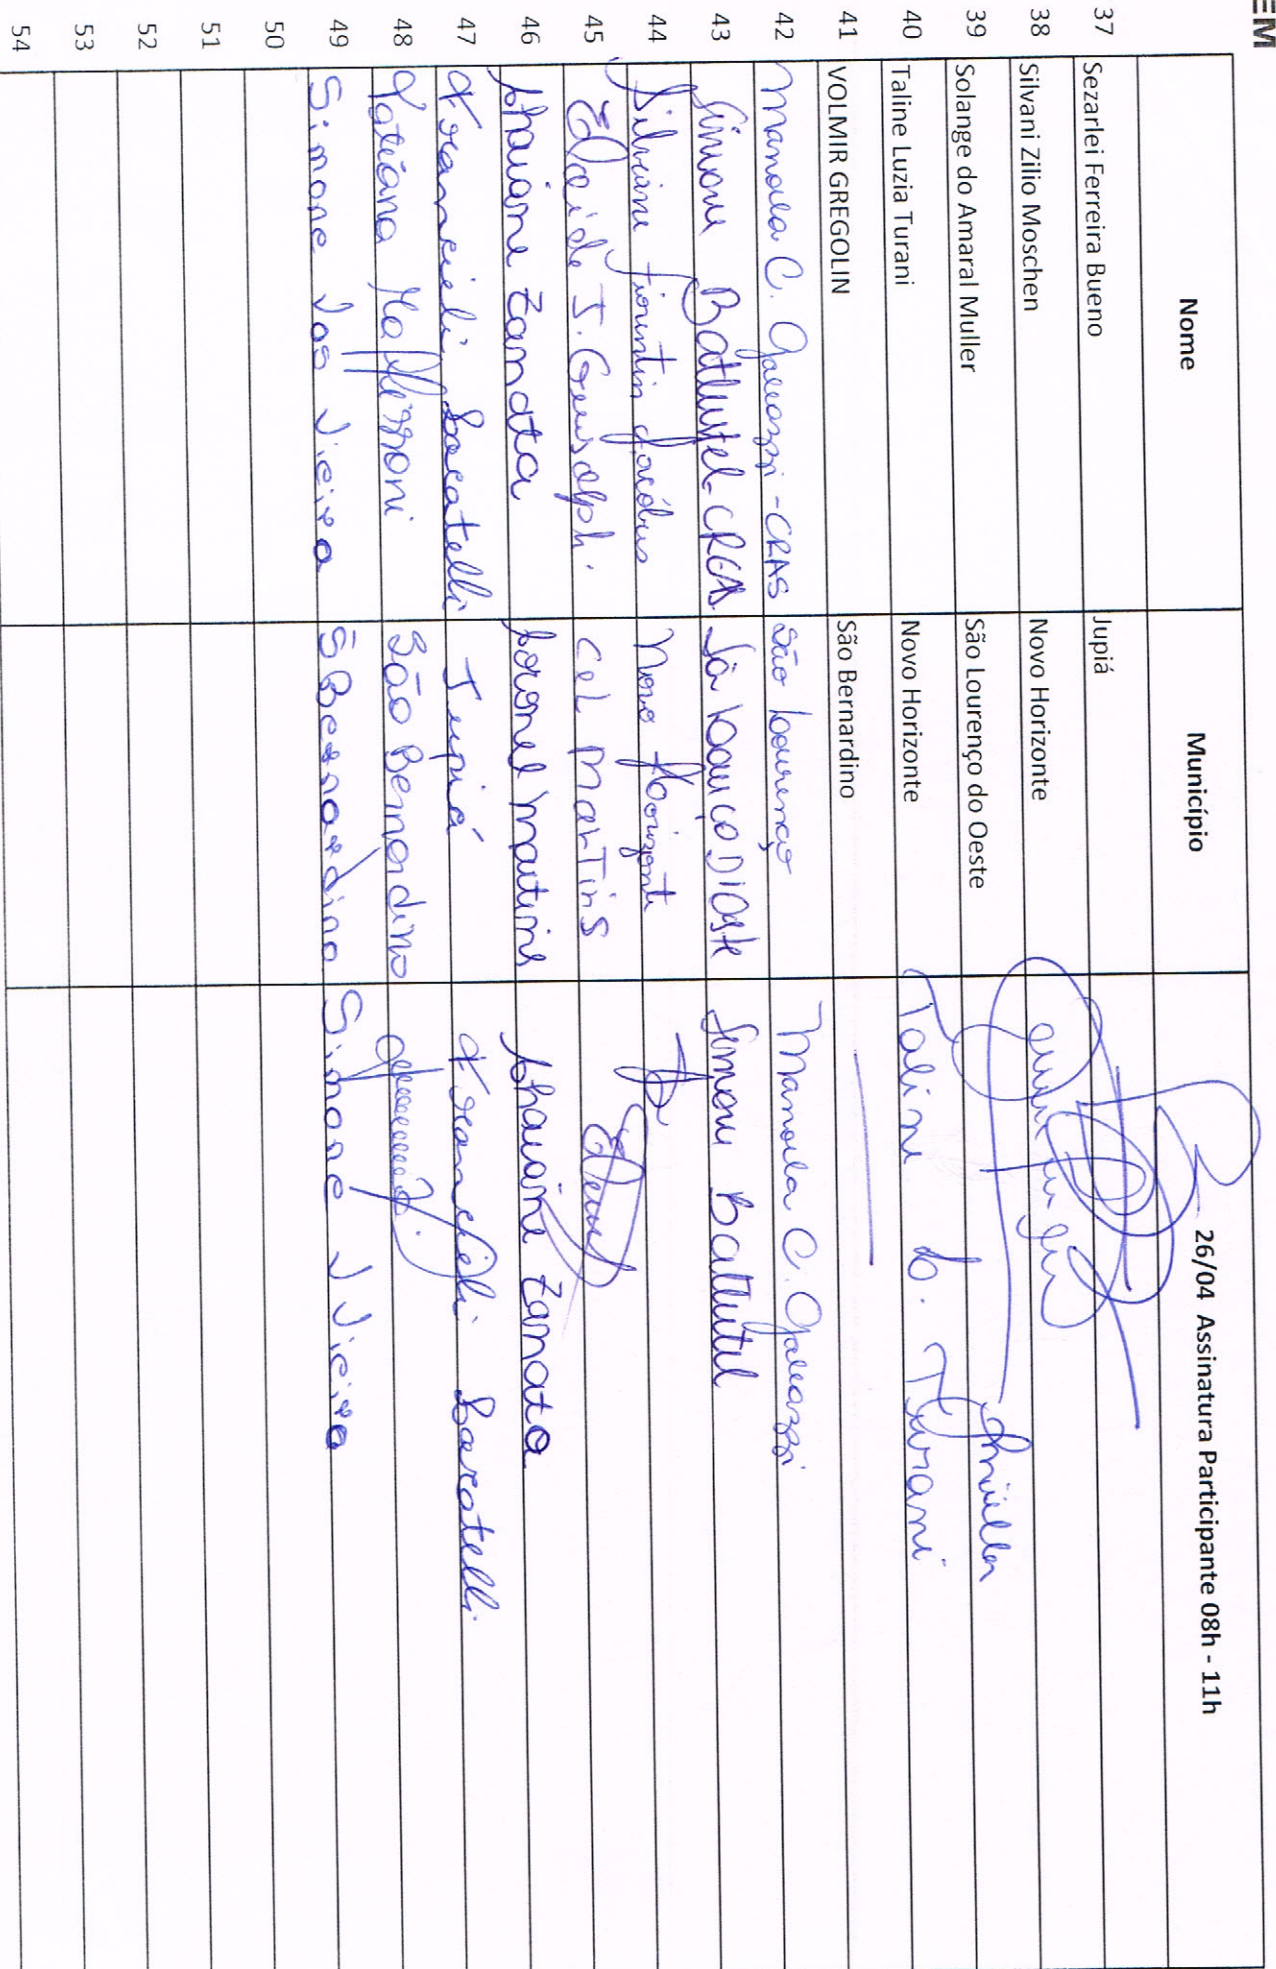 EM
Nome Município 26/04 Assinatura Participante 08h - 11h
37 Sezarlei Ferreira Bueno Jupiá
38 Silvani Zilio Moschen Novo Horizonte
39 Solange do Amaral Muller São Lourenço do Oeste Smüller
40 Taline Luzia Turani Novo Horizonte Taline L. Turani
41 VOLMIR GREGOLIN São Bernardino
42 Manoela C. Galeazzi - CRAS São Lourenço Manoela C. Galeazzi
43 Simone CREAS Simone
44 Silviane Fiorentin Jacóbus Novo Horizonte
45 Elaide T. Cel Martins
46 Zanata Coronel Martins Zanata
47 Francieli Jupiá Francieli
48 Tatiana Maffissoni São Bernardino
49 Simone Vas Vieira S Bernardino Simone V Vieira
50
51
52
53
54